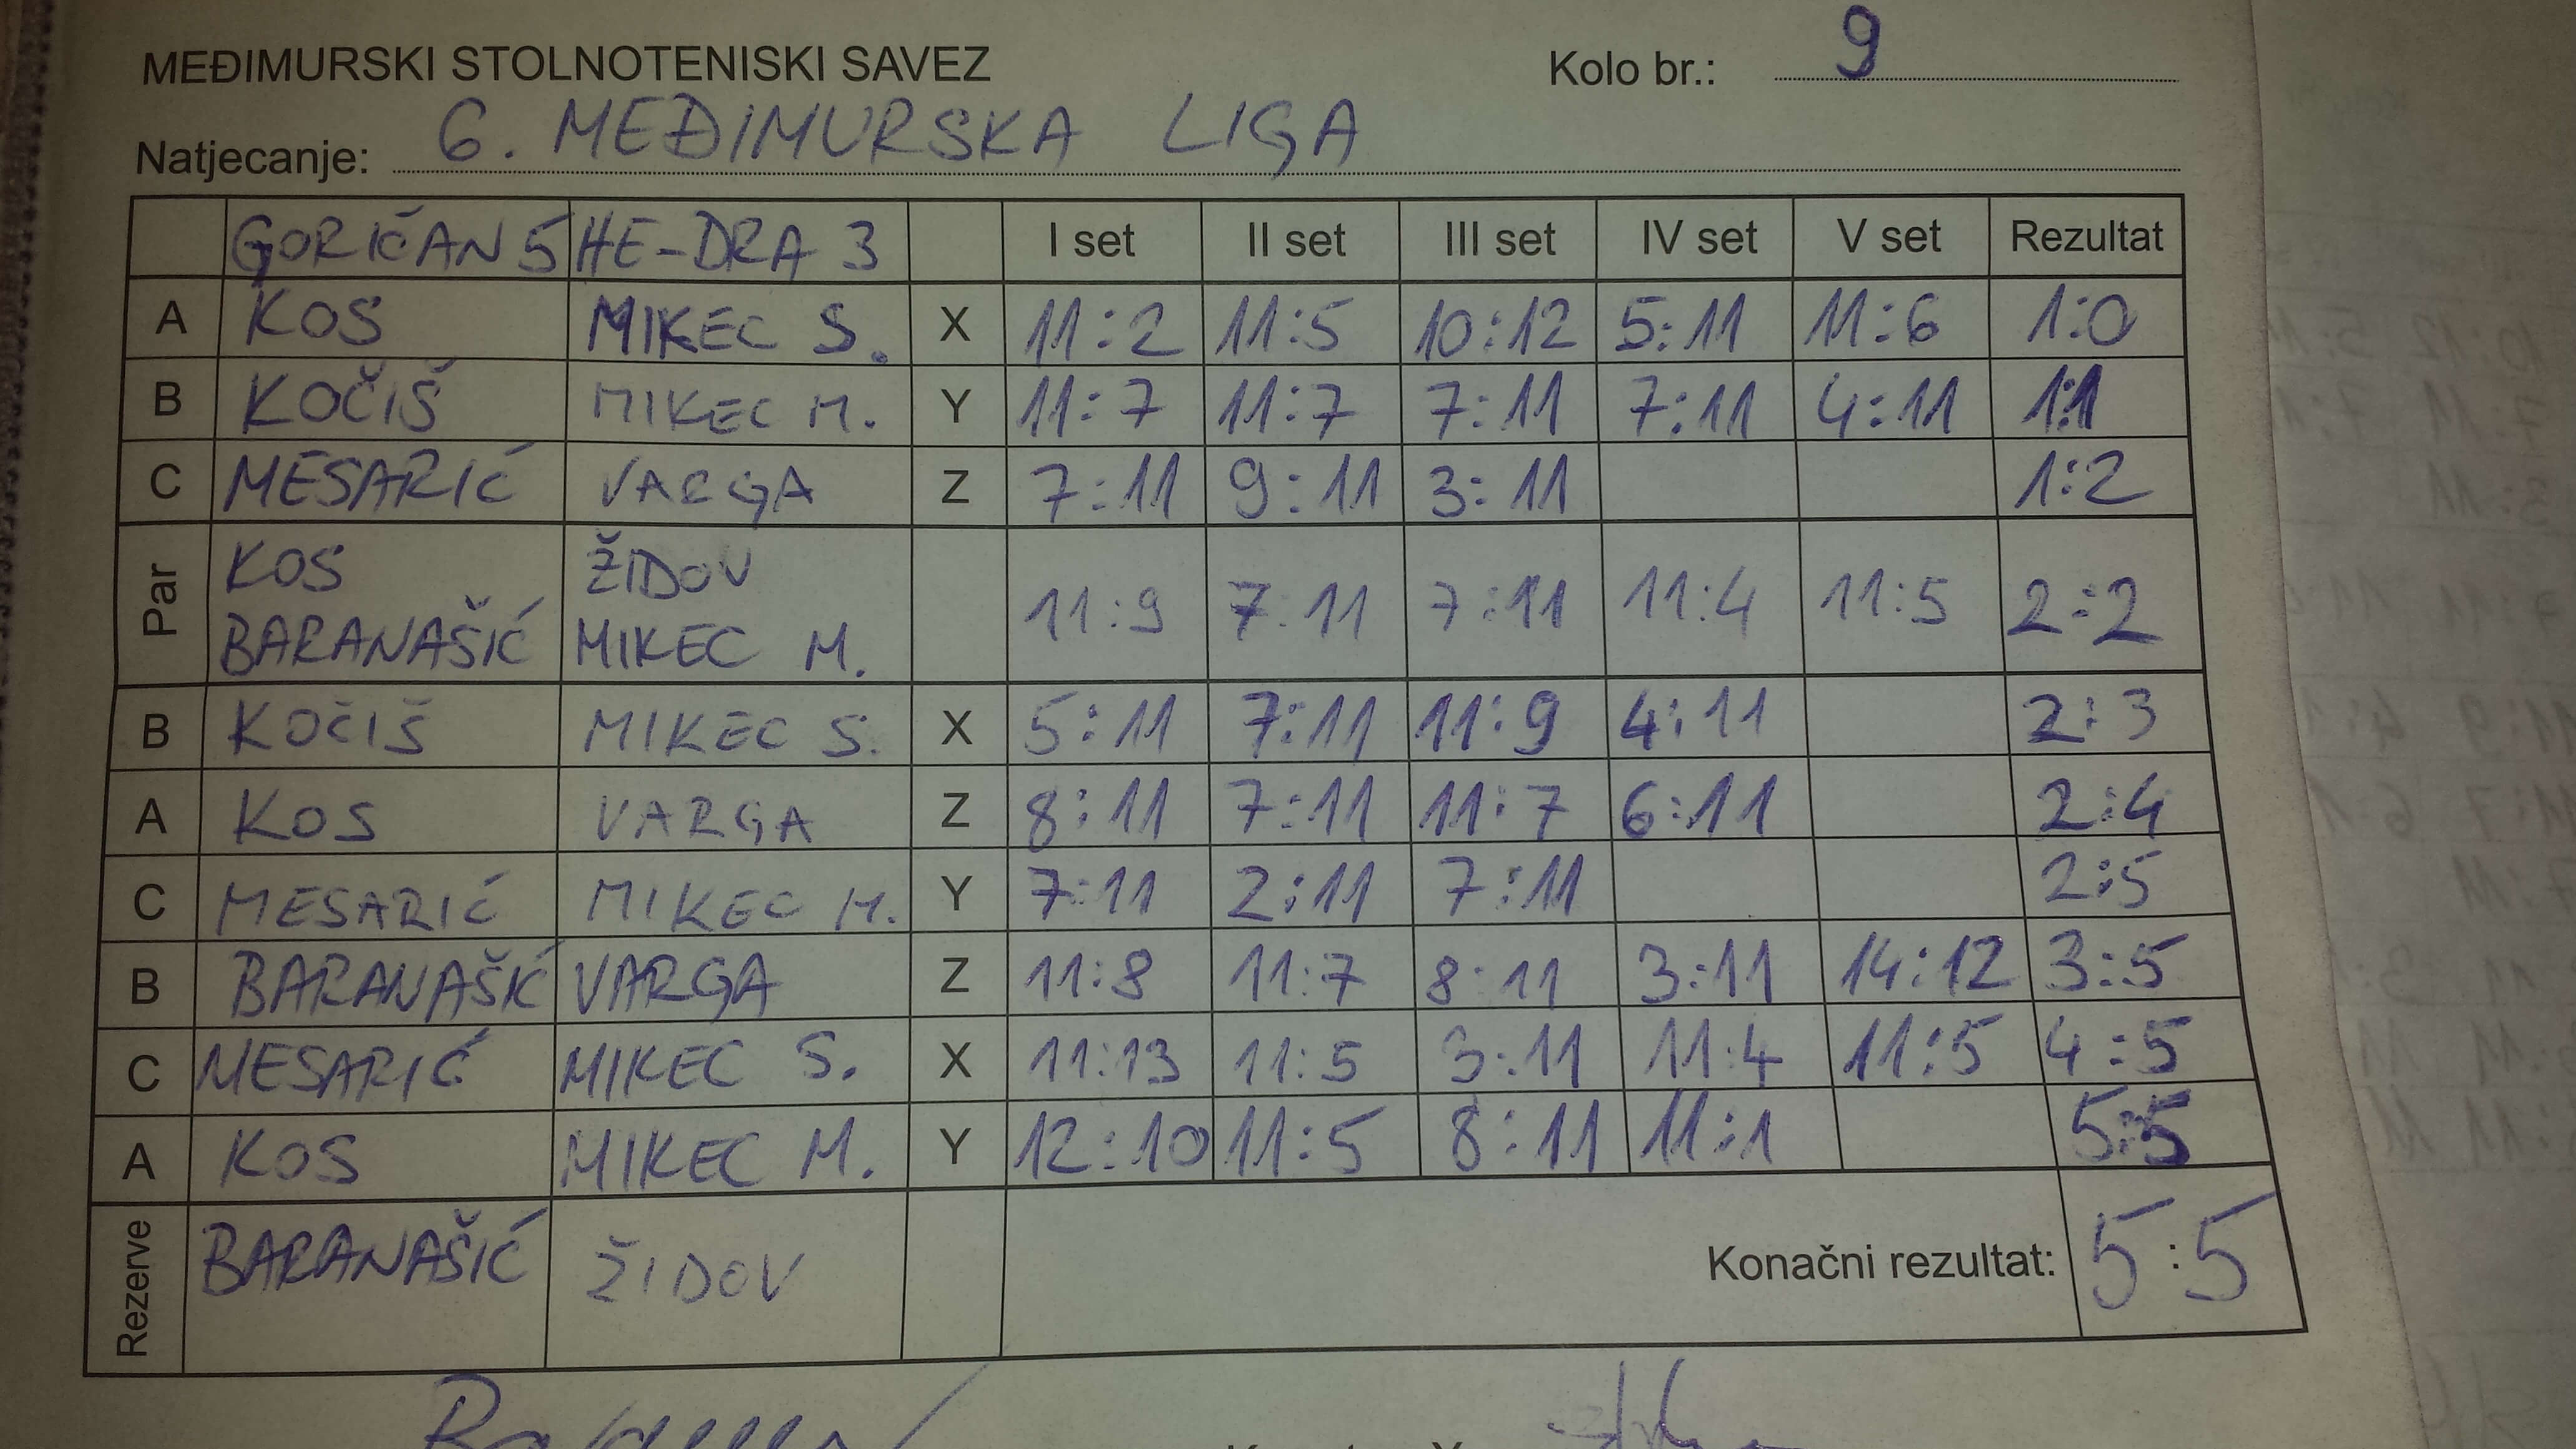 MEĐIMURSKI STOLNOTENISKI SAVEZ Kolo br.: 9
Natjecanje: 6. MEĐIMURSKA LIGA
GORIČAN 5 HE-DRA 3 I set II set III set IV set V set Rezultat
A KOS MIKEC S. X 11:2 11:5 10:12 5:11 11:6 1:0
B KOČIŠ MIKEC M. Y 11:7 11:7 7:11 7:11 4:11 1:1
C MESARIĆ VARGA Z 7:11 9:11 3:11 1:2
Par KOS ŽIDOV
BARANAŠIĆ MIKEC M. 11:9 7:11 7:11 11:4 11:5 2:2
B KOČIŠ MIKEC S. X 5:11 7:11 11:9 4:11 2:3
A KOS VARGA Z 8:11 7:11 11:7 6:11 2:4
C MESARIĆ MIKEC M. Y 7:11 2:11 7:11 2:5
B BARANAŠIĆ VARGA Z 11:8 11:7 8:11 3:11 14:12 3:5
C MESARIĆ MIKEC S. X 11:13 11:5 3:11 11:4 11:5 4:5
A KOS MIKEC M. Y 12:10 11:5 8:11 11:1 5:5
Rezerve BARANAŠIĆ ŽIDOV Konačni rezultat: 5:5